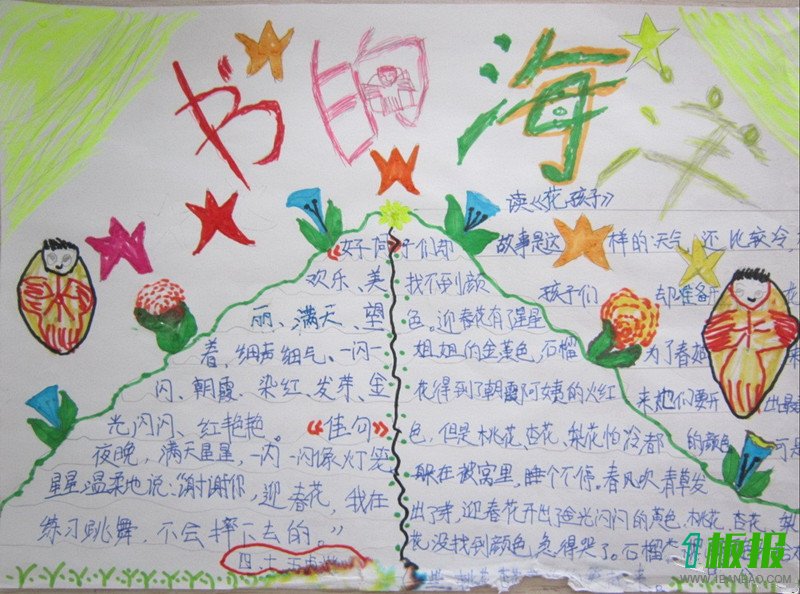 书的海洋
读《花孩子》
《好词》
欢乐、美
丽、满天、望
着，细声细气、一闪一
闪、朝霞、染红、发芽、金
光闪闪、红艳艳。
《佳句》
夜晚，满天星星，一闪一闪像灯笼
星星温柔地说：“谢谢你，迎春花，我在
练习跳舞，不会摔下去的。”
故事是这样的：天气还比较冷，
孩子们都准备开
为了春姑
来她们要开出最
的颜色
子们却
找不到颜
色。迎春花有了星星
姐姐的金黄色，石榴
花得到了朝霞阿姨的火红
色，但是桃花、杏花、梨花怕冷都
躲在被窝里，睡个不停。春风吹，青草发
出了芽，迎春花开出金光闪闪的黄色，桃花、杏花、梨
花没找到颜色急得哭了。石榴
四、十、五
板报
WWW.1BANBAO.COM